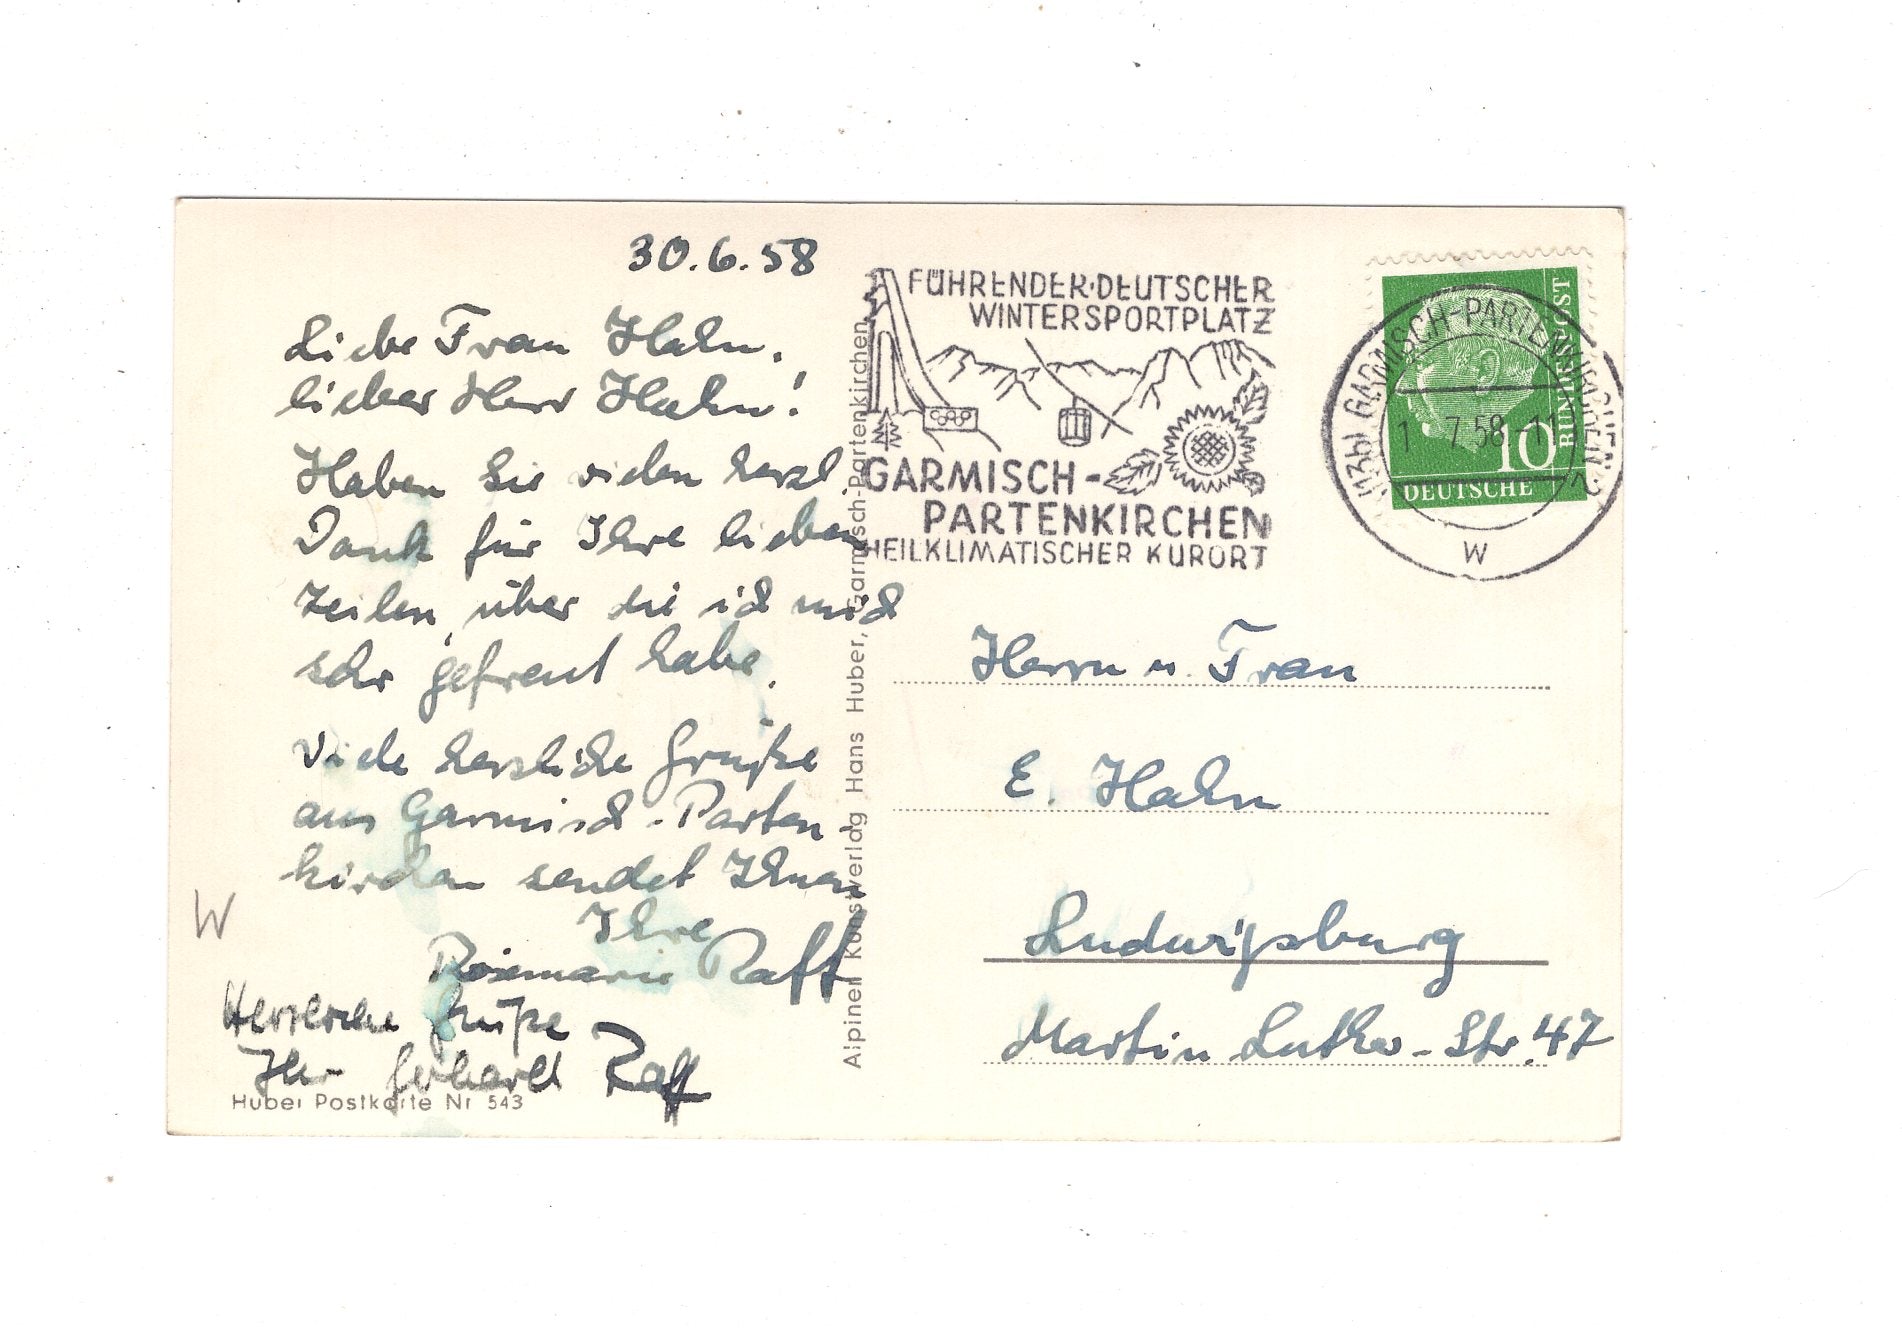 30.6.58
Liebe Frau Hahn,
lieber Herr Hahn!
Haben Sie vielen herzl.
Dank für Ihre lieben
Zeilen, über die ich mich
sehr gefreut habe.
Viele herzliche Grüße
aus Garmisch-Parten-
kirchen sendet Ihnen
Ihre
Rosemarie Raff
Herzliche Grüße
Ihr Gerhard Raff
W
Huber Postkarte Nr 543
Alpiner Kunstverlag Hans Huber, Garmisch-Partenkirchen
FÜHRENDER·DEUTSCHER
WINTERSPORTPLATZ
GARMISCH-
PARTENKIRCHEN
HEILKLIMATISCHER KURORT
(13b) GARMISCH-PARTENKIRCHEN 2
1.7.58-11
w
10
DEUTSCHE
BUNDESPOST
Herrn u. Frau
E. Hahn
Ludwigsburg
Martin Luther-Str. 47